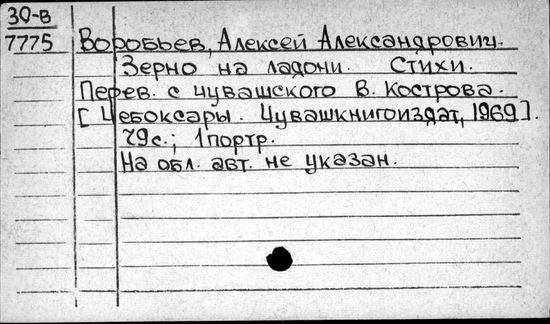 30-в
7775 Воробьев, Алексей Александрович.
Зерно на ладони. Стихи.
Перев. с чувашского В. Кострова.
[Чебоксары. Чувашкнигоиздат, 1969].
79 с.; 1 портр.
На обл. авт. не указан.